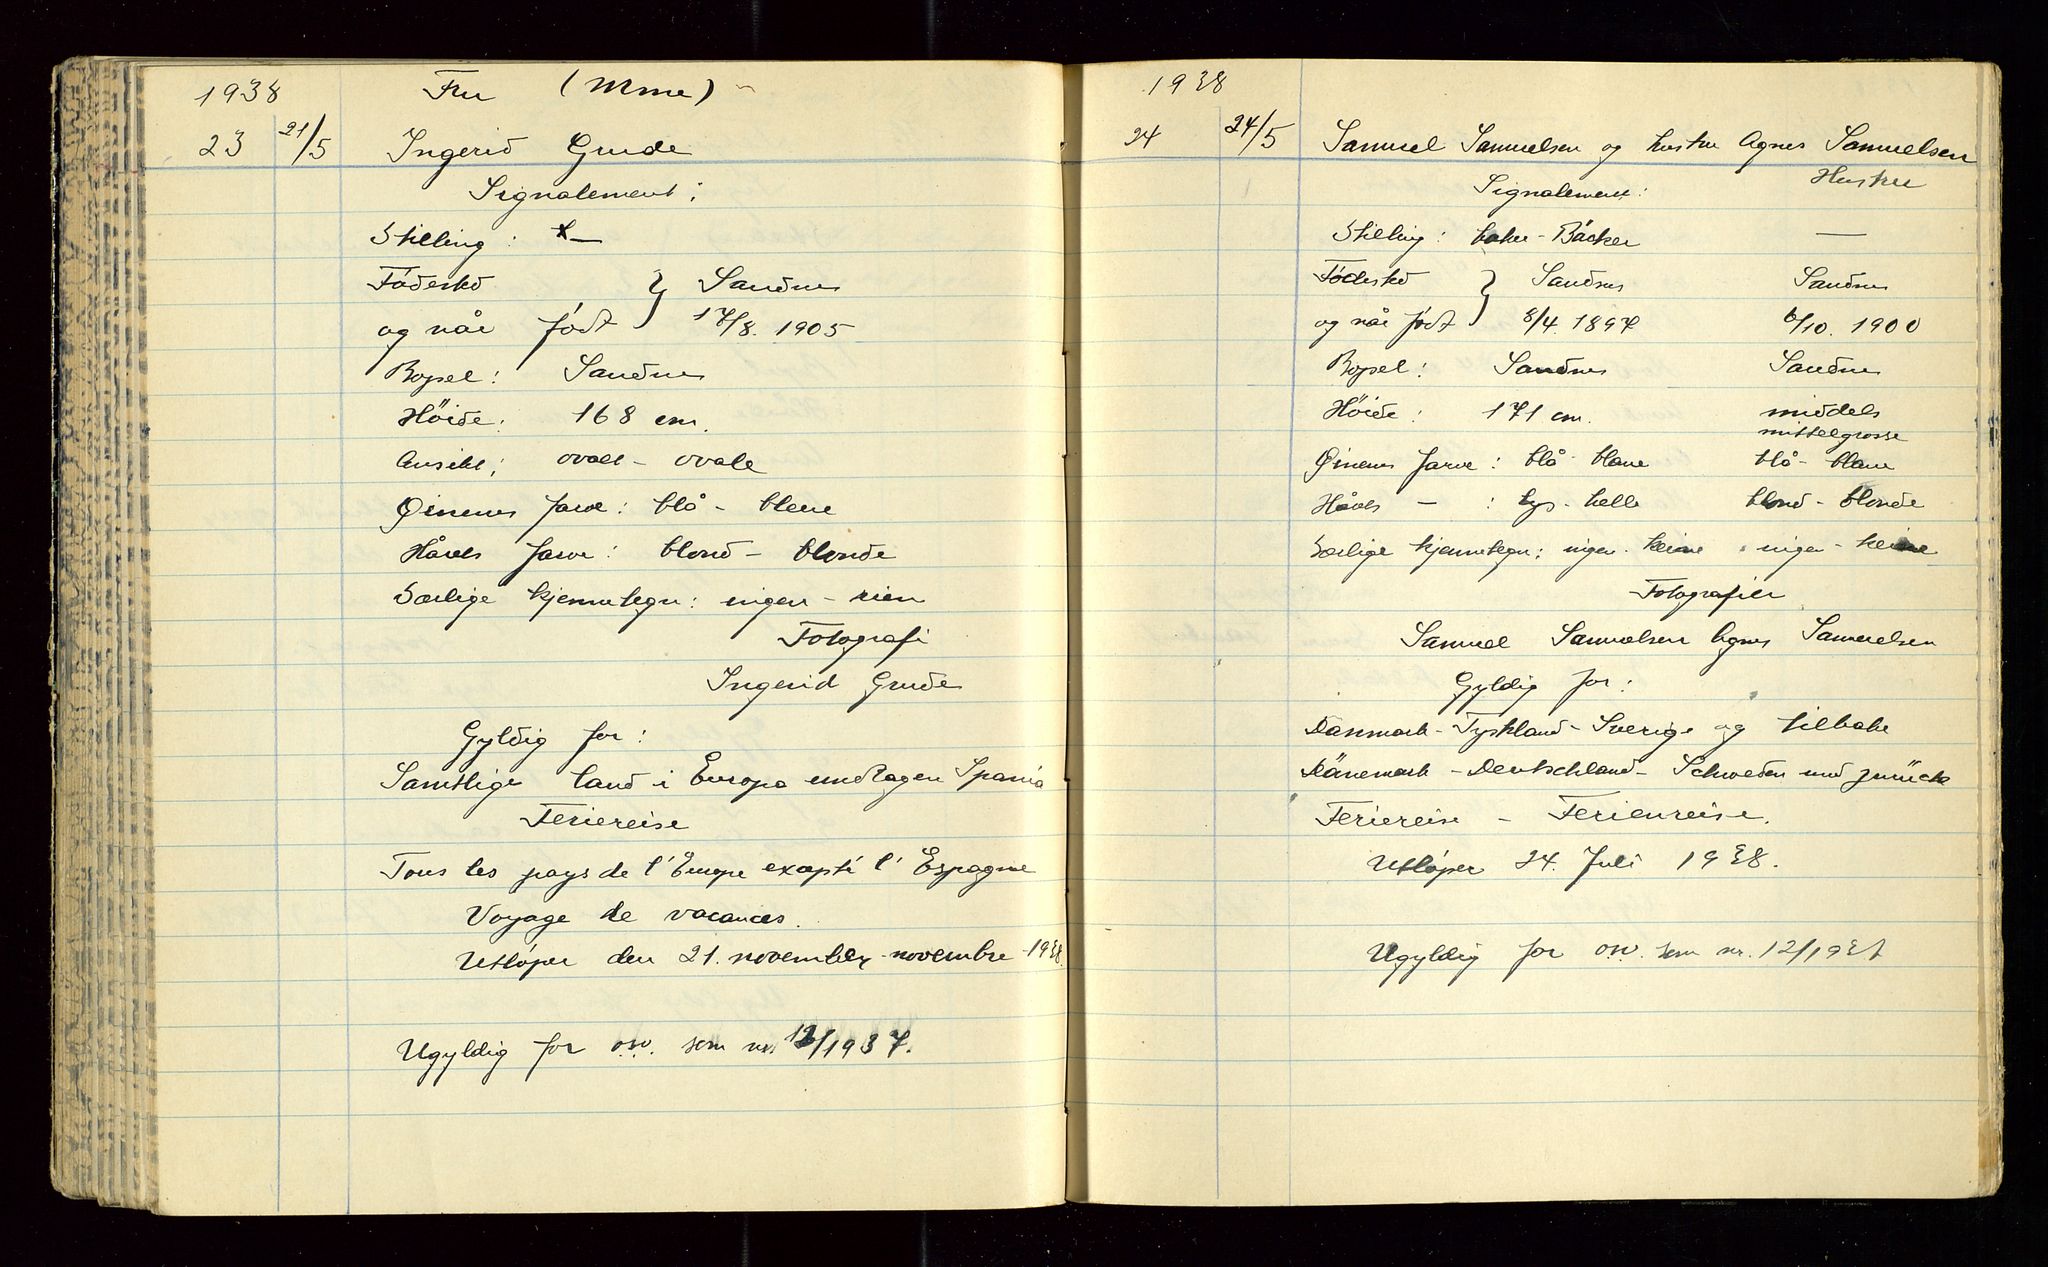 1938 Fru (Mme)
23 21/5 Ingerid Grude
Signalement:
Stilling: —
Fødested
og når født } Sandnes 17/8. 1905
Bopel: Sandnes
Höide: 168 cm.
Ansikt: ovalt - ovale
Øinenes farve: blå - bleue
Hårets farve: blond - blonde
Særlige kjennetegn: ingen - rien
Fotografi
Ingerid Grude
Gyldig for:
Samtlige land i Europa undtagen Spania
Feriereise
Tous les pays de l'Europe excepté l'Espagne
Voyage de vacances.
Utløper den 21. november - novembre - 1938.
Ugyldig for o.s.v. som nr. 12/1937.
1938
24 24/5 Samuel Samuelsen og hustru Agnes Samuelsen
Signalement: Hustru
Stilling: baker - Bäcker —
Fødested } Sandnes Sandnes
og når født 8/4. 1897 6/10. 1900
Bopel: Sandnes Sandnes
Höide: 171 cm. middels
mittelgrosse
Øinenes farve: blå - blaue blå - blaue
Hårets — : lys - helle blond - blonde
Særlige kjennetegn: ingen - keine ingen - keine
Fotografier
Samuel Samuelsen Agnes Samuelsen
Gyldig for:
Danmark - Tyskland - Sverige og tilbake
Dänemark - Deutschland - Schweden und zurück
Feriereise - Ferienreise.
Utløper 24. Juli 1938.
Ugyldig for o.s.v. som nr. 12/1937